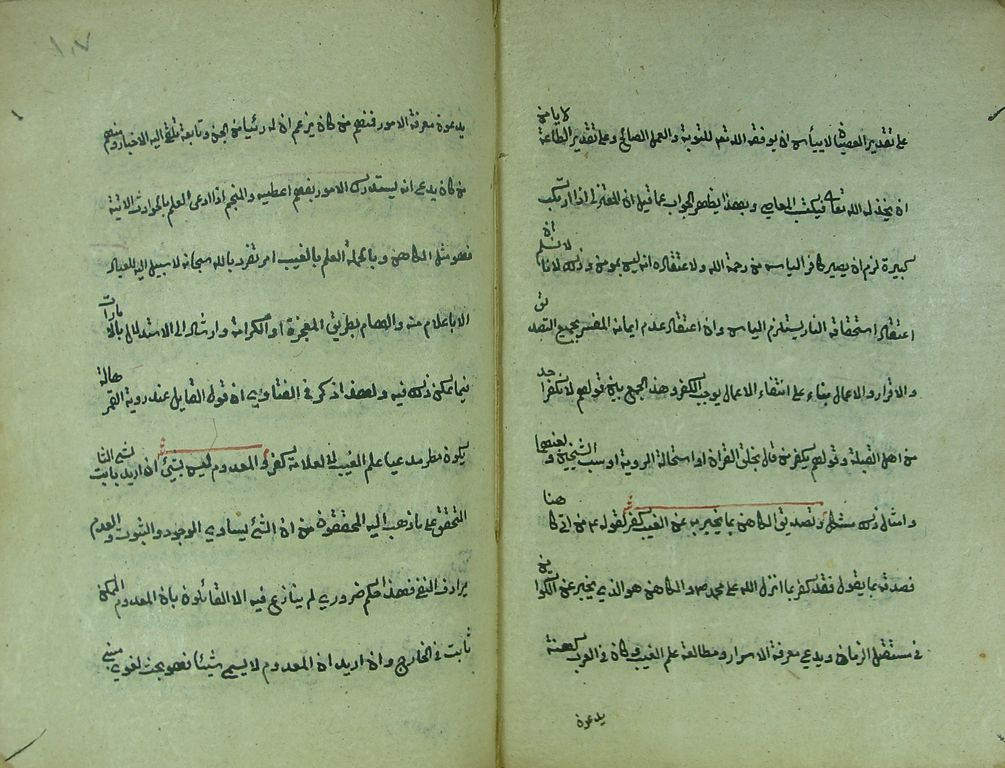 على تقدير العصيان لا ييأس ان يوفقه الله تعه للتوبة والعمل الصالح وعلى تقدير الطاعة لا يامن
ان يخذله الله تعالى فيكتسب المعاصي وبهذا يظهر الجواب عما قيل ان المعتزلي اذا ارتكب
كبيرة لزم ان يصير كافر الياسه من رحمة الله ولاعتقاده انه ليس بمومن وذلك لانا لا نسلم ان
اعتقاد استحقاقه النار يستلزم الياس وان اعتقاد عدم ايمانه المفسر بجميع التصديق
والاقرار والاعمال بناء على انتفاء الاعمال يوجب الكفر وهذا الجمع بين قولهم لا نكفر احد
من اهل القبلة وقولهم يكفر من قال بخلق القران او استحالة الروية او سب الشيخين او لعنهما
وامثال ذلك مشكل وتصديق الكاهن بما يخبر به عن الغيب كفر لقوله عم من اتى كاهنا
فصدقه بما يقول فقد كفر بما انزل الله على محمد صم والكاهن هو الذي يخبر عن الكواين
في مستقبل الزمان ويدعي معرفة الاسرار ومطالعة علم الغيب وكان في العرب كهنة
يدعوة
١٠٧
يدعوة معرفة الامور فمنهم من كان يزعم ان له رئيا من الجن وتابعة تلقي اليه الاخبار ومنهم
من كان يدعي انه يستدرك الامور بفهم اعطيه والمنجم اذا ادعى العلم بالحوادث الاتية
فهو مثل الكاهن وبالجملة العلم بالغيب امر تفرد به الله سبحانه لا سبيل اليه للعباد
الا باعلام منه والهام بطريق المعجزة او الكرامة او ارشاد الى الاستدلال بالامارات
فيما يمكن ذلك فيه ولهذا ذكر في الفتاوي ان قول القايل عند روية القمر هالة
يكون مطر مدعيا علم الغيب لا لعلامة يكفر والمعدوم ليس بشيئ ان اريد بالشي الثابت
المتحقق على ما ذهب اليه المحققون من ان الشئ يساوي الوجود والثبوت والعدم
يرادف النفي فهذا حكم ضروري لم ينازع فيه الا القائلون بان المعدوم الممكن
ثابت في الخارج وان اريد ان المعدوم لا يسمى شيئا فهو بحث لغوي مبني